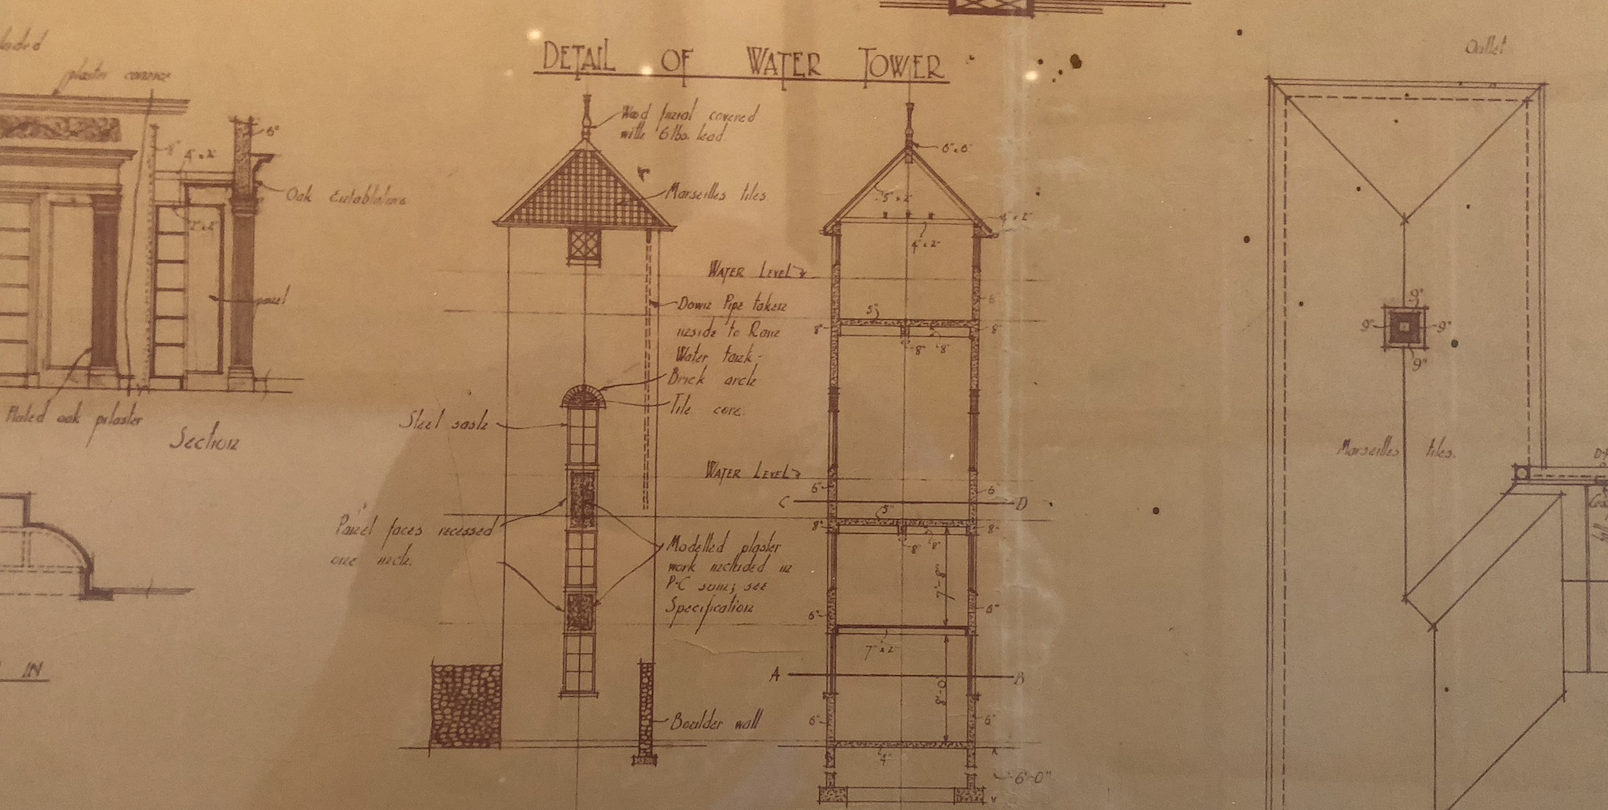 DETAIL OF WATER TOWER
plaster cornice
6"
8"
4" x 2"
Oak Entablature
2" x 2"
panel
Fluted oak pilaster
Section
IN
Wood finial covered
with 6 lbs. lead.
Marseilles tiles
Down Pipe taken
inside to Rain
Water tank -
Brick arch
Tile core.
Steel sash
Panel faces recessed
one inch.
Modelled plaster
work included in
P-C sum; see
Specification
Boulder wall
6" x 6"
5" x 2"
4" x 2"
4" x 2"
WATER LEVEL
6"
5"
8"
8"
8"
8"
WATER LEVEL
6"
6"
C
D
5"
8"
8"
8"
8"
7'-8"
6"
6"
7" x 2"
A
B
8'-0"
6"
6"
4"
6'-0"
Outlet
9"
9"
9"
9"
Marseilles tiles.